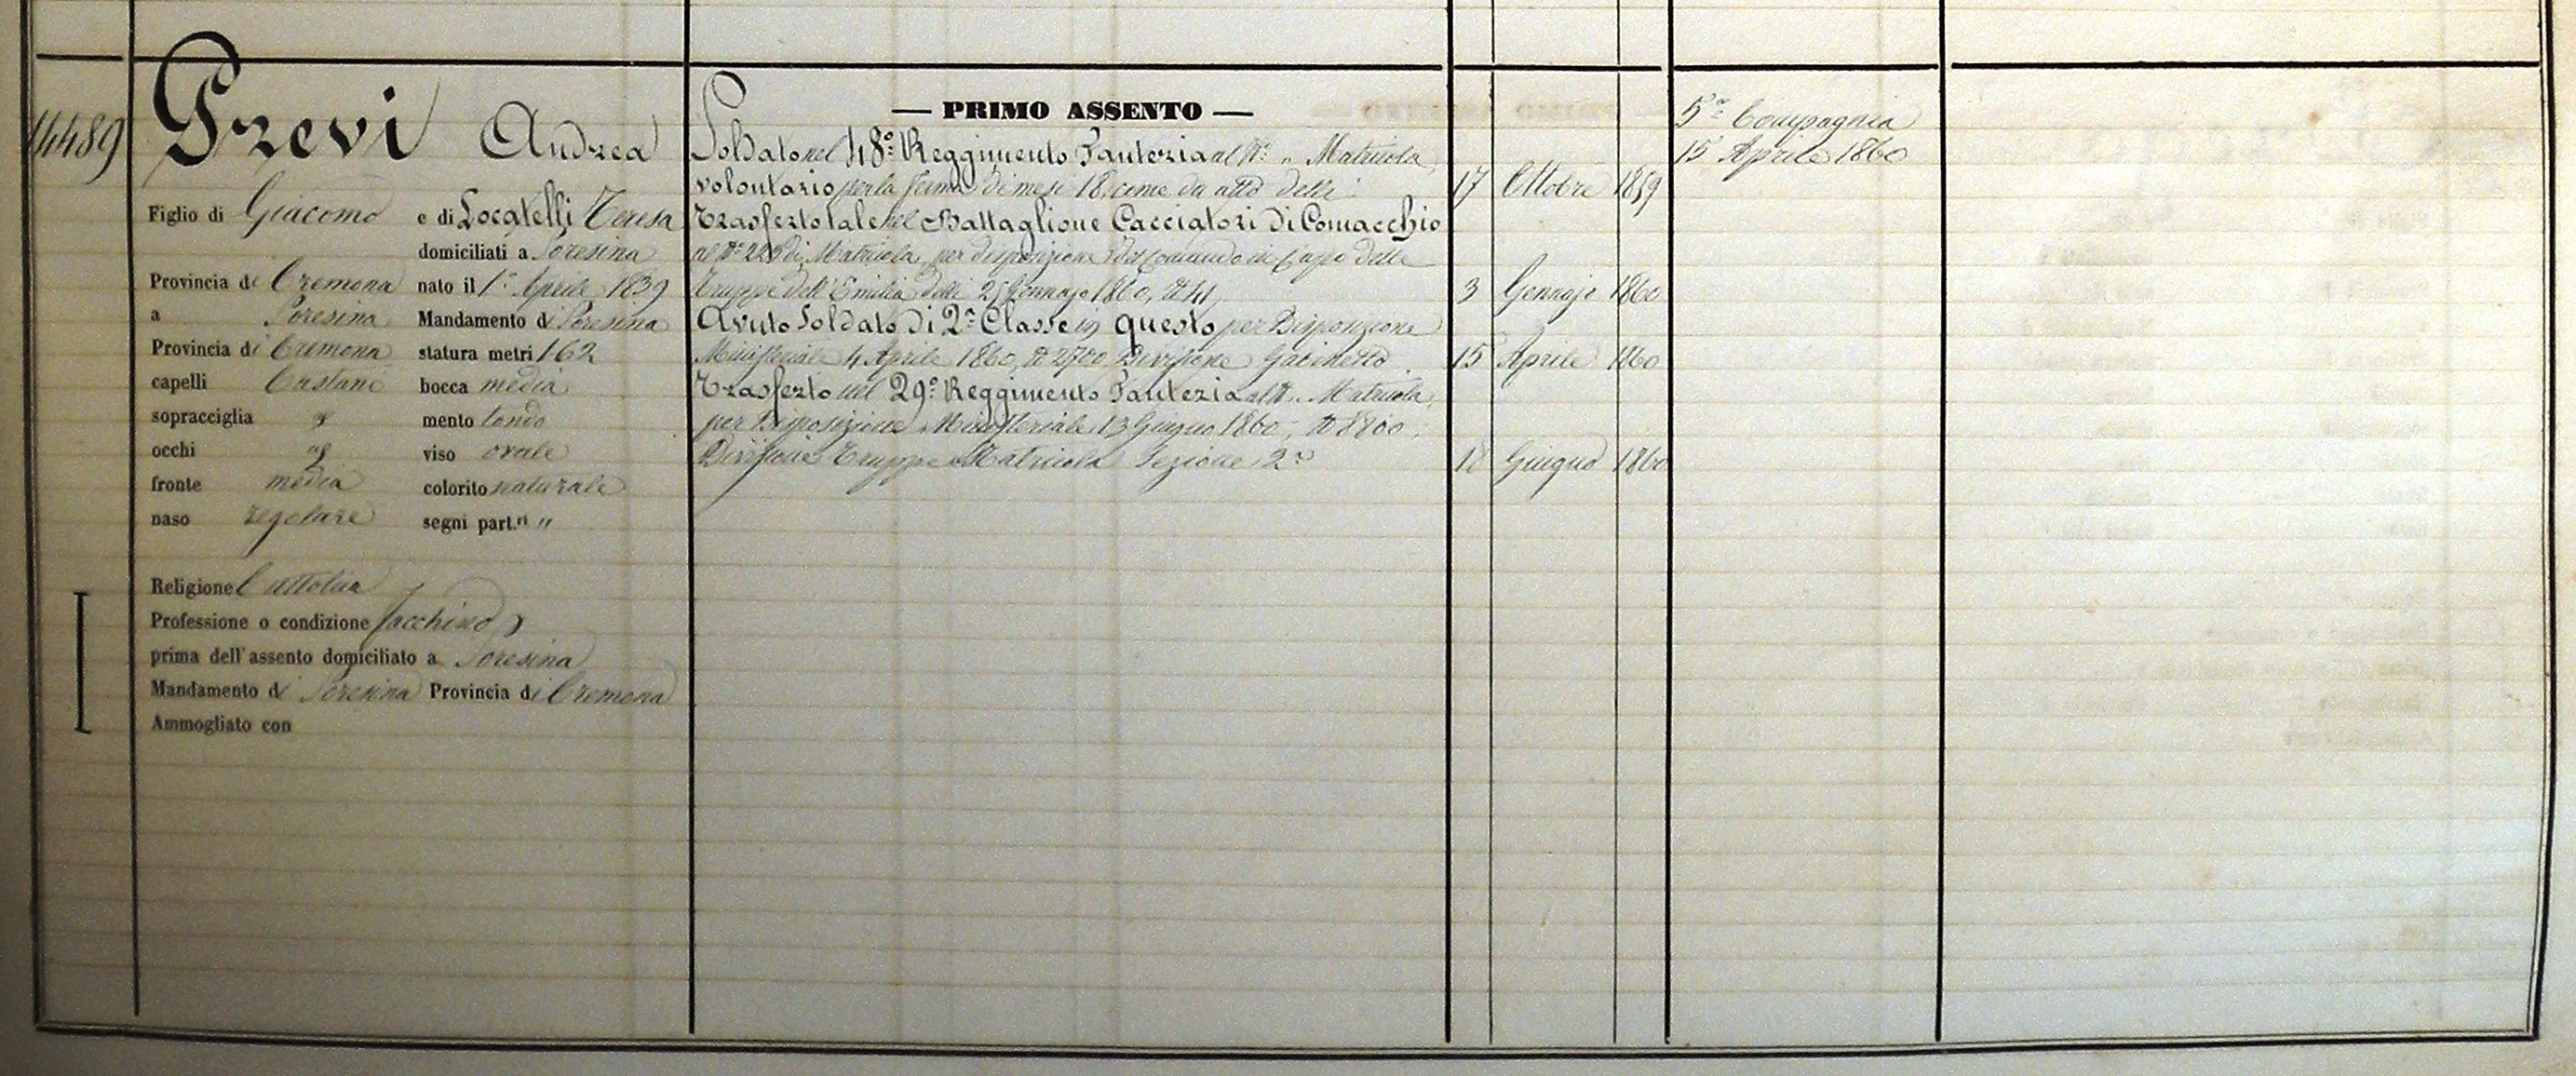 14489
Previ Andrea
Figlio di Giacomo e di Locatelli Teresa
domiciliati a Soresina
Provincia di Cremona nato il 1° Aprile 1839
a Soresina Mandamento di Soresina
Provincia di Cremona statura metri 1 62
capelli Castani bocca media
sopracciglia mento tondo
occhi viso ovale
fronte media colorito naturale
naso regolare segni part.ri "
Religione Cattolica
Professione o condizione facchino
prima dell'assento domiciliato a Soresina
Mandamento di Soresina Provincia di Cremona
Ammogliato con
— PRIMO ASSENTO —
Soldato nel 48° Reggimento Fanteria al N° " Matricola,
volontario per la ferma di mesi 18, come da atto delli 17 Ottobre 1859
Trasferto tale nel Battaglione Cacciatori di Comacchio
al N° di Matricola, per disposizione del Comando in Capo delle
Truppe dell'Emilia delli Gennajo 1860, N° 41, 3 Gennajo 1860
Avuto Soldato di 2ª Classe in questo per Disposizione
Ministeriale 4 Aprile 1860, N° 2700 Divisione Gabinetto 15 Aprile 1860
Trasferto nel 29° Reggimento Fanteria al N° " Matricola,
per Disposizione Ministeriale 13 Giugno 1860, N° 8800,
Divisione Truppe Matricola Sezione 2ª 18 Giugno 1860
5ª Compagnia
15 Aprile 1860